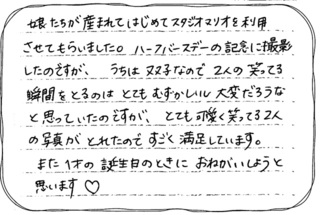 娘たちが産まれてはじめてスタジオマリオを利用
させてもらいました。ハーフバースデーの記念に撮影
したのですが、うちは双子なので2人の笑ってる
瞬間をとるのはとてもむずかしいし大変だろうな
と思っていたのですが、とても可愛く笑ってる2人
の写真がとれたのですごく満足しています。
また1才の誕生日のときにおねがいしようと
思います♡